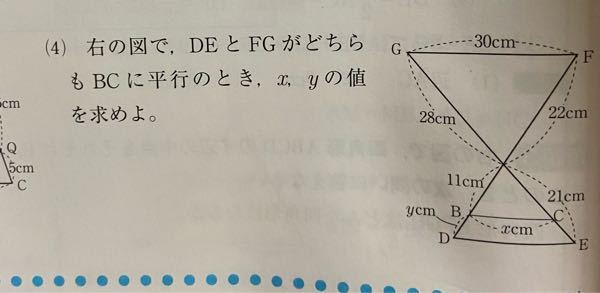 (4) 右の図で，DEとFGがどちら
もBCに平行のとき，x，yの値
を求めよ。
G 30cm F
28cm 22cm
11cm 21cm
ycm B C
xcm
D E
Q
5cm
C